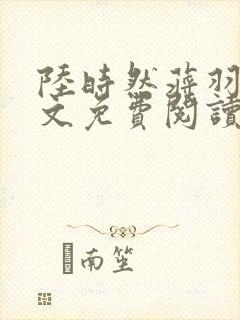 陸時然蒋羽
文免費閱讀
南笙